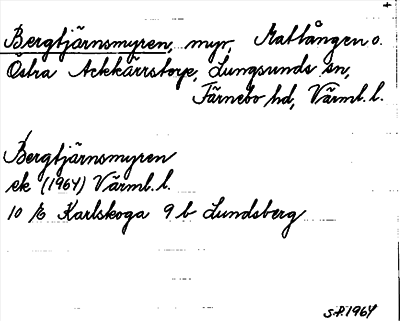 Bergtjärnsmyren, myr, Matlången o.
Östra Ackkärrstorp, Lungsunds sn,
Färnebo hd, Värml. l.
Bergtjärnsmyren
ek (1964) Värml. l.
10 E Karlskoga 9 b Lundsberg
S.P. 1964